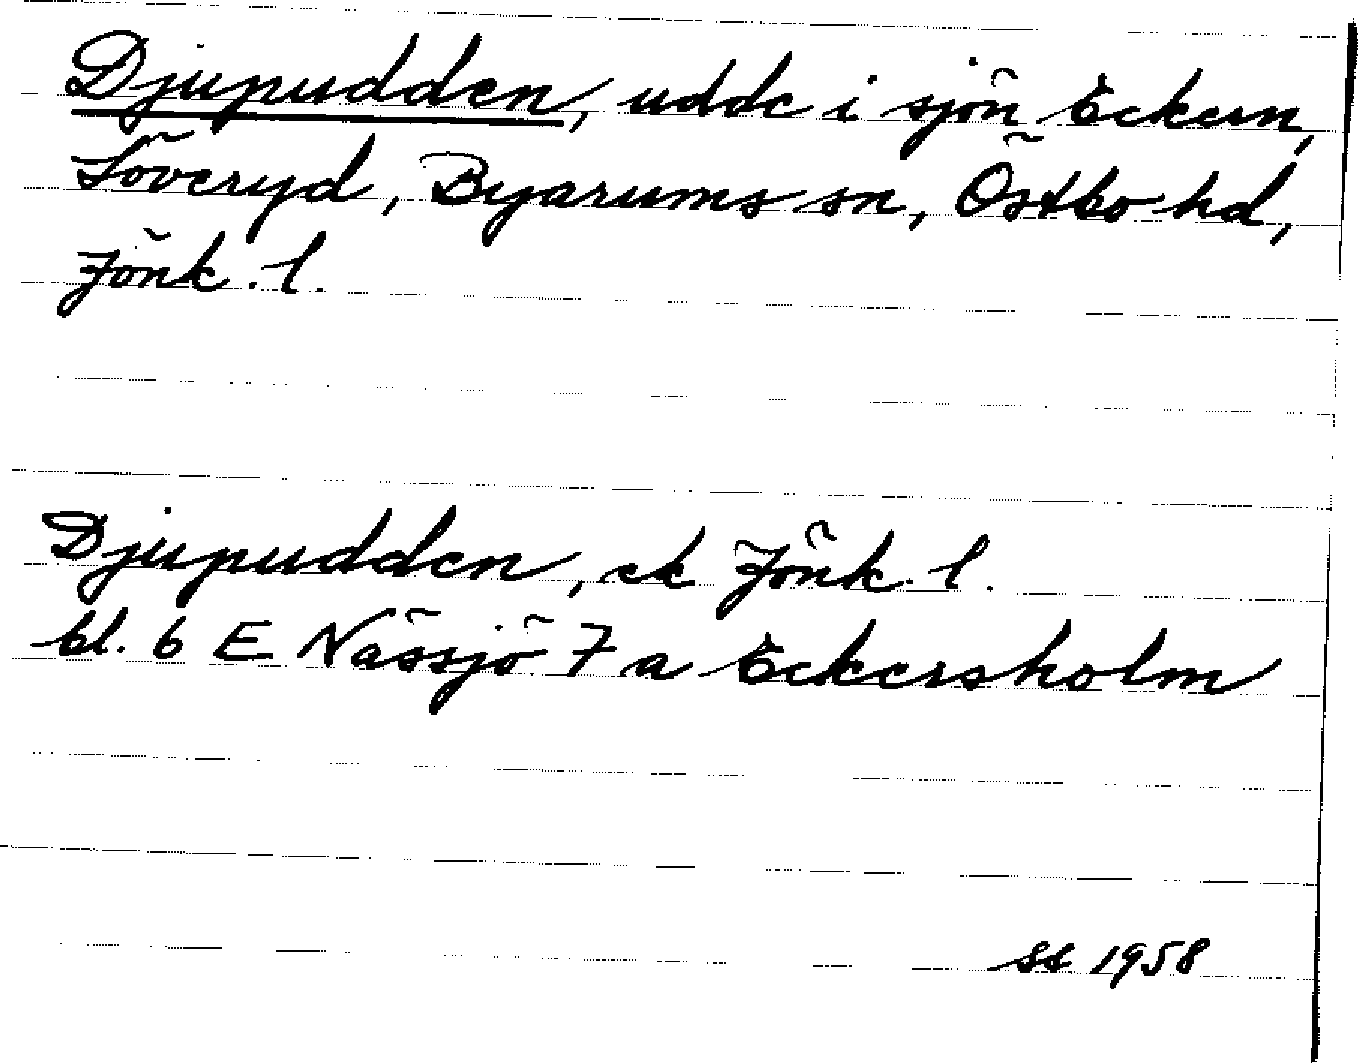 Djupudden, udde i sjön Eckern,
Söveryd, Byarums sn, Östbo hd,
Jönk. l.
Djupudden, ek Jönk. l.
bl. 6 E Nässjö 7 a Eckersholm
SS 1958